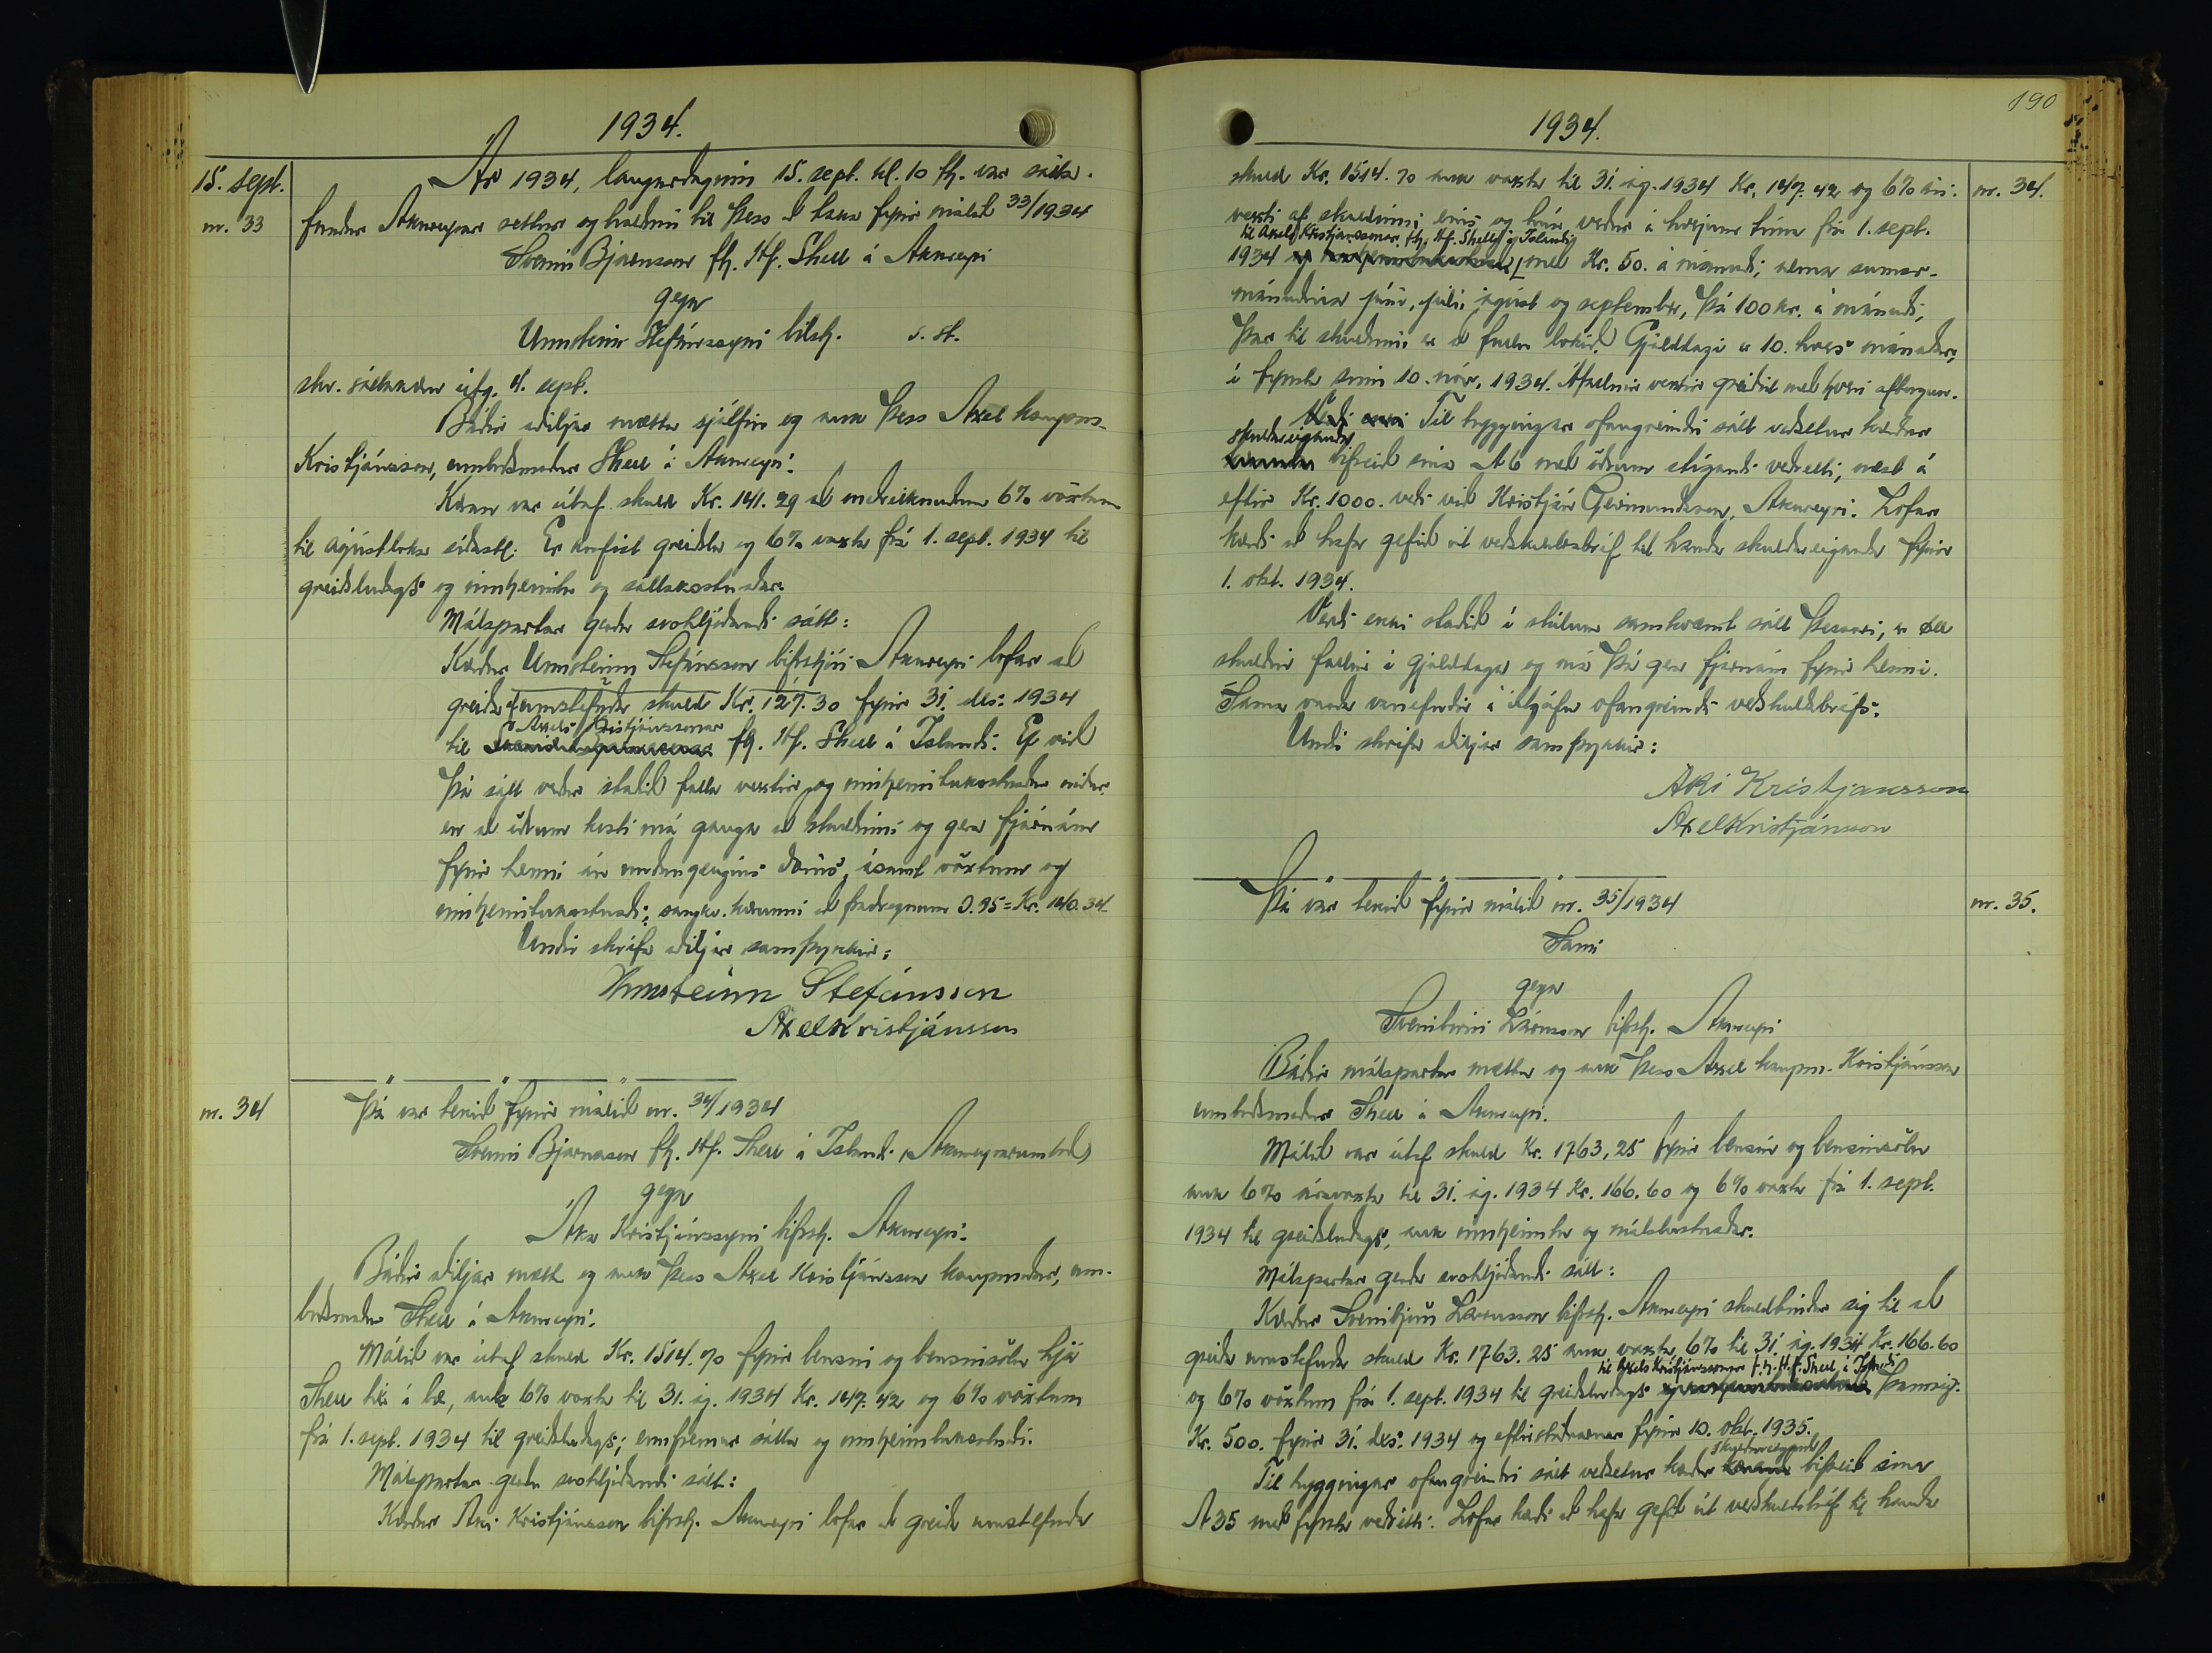 1934.
15. sept.
nr. 33
Ár 1934, laugardaginn 15. sept. kl. 10 fh. var sátta-
fundur Akureyrar settur og haldinn til þess að taka fyrir málið 33/1934
Sveinn Bjarnason fh. Hf. Shell á Akureyri
gegn
Unnsteini Stefánssyni bílstj. s. st.
skv. sáttakæru útg. 4. sept.
Báðir aðiljar mættu sjálfir og auk þess Axel kaupm.
Kristjánsson, umboðsmaður Shell á Akureyri.
Kæran var útaf skuld Kr. 141.29 að meðreiknuðum 6% vöxtum
til ágústloka síðastl. Er krafist greiðslu og 6% vaxta frá 1. sept. 1934 til
greiðsludags og innheimtu og sáttakostnaðar.
Málspartar gerðu svohljóðandi sátt:
Kærður Unnsteinn Stefánsson bifrstjóri Akureyri lofar að
greiða umstefnda skuld Kr. 127.30 fyrir 31. des. 1934
Axels Kristjánssonar
til fh. Hf. Shell á Íslandi. Ef við
þá sátt verður staðið falla vextir og innheimtukostnaður niður
en að öðrum kosti má ganga að skuldinni og gera fjárnám
fyrir henni án undangengins dóms, ásamt vöxtum og
innheimtukostnaði, samkv. kærunni að frádregnum 0.95 = Kr. 140.34
Undir skrifa aðiljar samþykkir:
Unnsteinn Stefánsson
Axel Kristjánsson
nr. 34
Þá var tekið fyrir málið nr. 34/1934
Sveinn Bjarnason fh. Hf. Shell á Íslandi (Akureyrarumboð)
gegn
Áka Kristjánssyni bifrstj. Akureyri.
Báðir aðiljar mættu og auk þess Axel Kristjánsson kaupmaður, um-
boðsmaður Shell á Akureyri.
Málið var útaf skuld Kr. 1514.70 fyrir bensín og bensínsölu hjá
Shell hér í bæ, auk 6% vaxta til 31. ág. 1934 Kr. 147.42 og 6% vöxtum
frá 1. sept. 1934 til greiðsludags; ennfremur sátta og innheimtukostnaði.
Málspartar gerðu svohljóðandi sátt:
Kærður Áki Kristjánsson bifrstj. Akureyri lofar að greiða umstefnda
190
1934.
nr. 34.
skuld Kr. 1514.70 auk vaxta til 31. ág. 1934 Kr. 147.42 og 6% árs-
vexti af skuldinni eins og hún verður á hverjum tíma frá 1. sept.
til Axels Kristjánssonar fh. Hf. Shell á Íslandi
1934 með Kr. 50. á mánuði, nema sumar-
mánuðina júní, júlí, ágúst og september, þá 100 kr. á mánuði,
þar til skuldinni er að fullu lokið. Gjalddagi er 10. hvers mánaðar,
í fyrsta sinn 10. nóv. 1934. Áfallnir vextir greiðist með hverri afborgun.
Til tryggingar ofangreindri sátt veðsetur kærður
skuldareiganda
bifreið sína A 6 með öðrum stígandi veðrétti, næst á
eftir Kr. 1000. veði við Kristján Geirmundsson, Akureyri. Lofar
kærði að hafa gefið út veðskuldabréf til handa skuldareiganda fyrir
1. okt. 1934.
Verði ekki staðið í skilum samkvæmt sátt þessari, er öll
skuldin fallin í gjalddaga og má þá gera fjárnám fyrir henni.
Sama varða vanefndir á útgáfu ofangreinds veðskuldabréfs.
Undir skrifa aðiljar samþykkir:
Áki Kristjansson
Axel Kristjánsson
nr. 35.
Þá var tekið fyrir málið nr. 35/1934
Sami
gegn
Sveinbirni Lárussyni bifrstj. Akureyri
Báðir málspartar mættu og auk þess Axel kaupm. Kristjánsson
umboðsmaður Shell á Akureyri.
Málið var útaf skuld Kr. 1763,25 fyrir bensín og bensínsölu
auk 6% ársvaxta til 31. ág. 1934 Kr. 166.60 og 6% vaxta frá 1. sept.
1934 til greiðsludags, auk innheimtu og málskostnaðar.
Málspartar gerðu svohljóðandi sátt:
Kærður Sveinbjörn Lárusson bifrstj. Akureyri skuldbindur sig til að
greiða umstefnda skuld Kr. 1763.25 auk vaxta, 6% til 31. ág. 1934 Kr. 166.60
til Axels Kristjánssonar f.h. H.f. Shell á Íslandi
og 6% vöxtum frá 1. sept. 1934 til greiðsludags þannig:
Kr. 500. fyrir 31. des. 1934 og eftirstöðvarnar fyrir 10. okt. 1935.
skuldareiganda
Til tryggingar ofangreindri sátt veðsetur kærður bifreið sína
A 35 með fyrsta veðrétti. Lofar kærði að hafa gefið út veðskuldabréf til handa